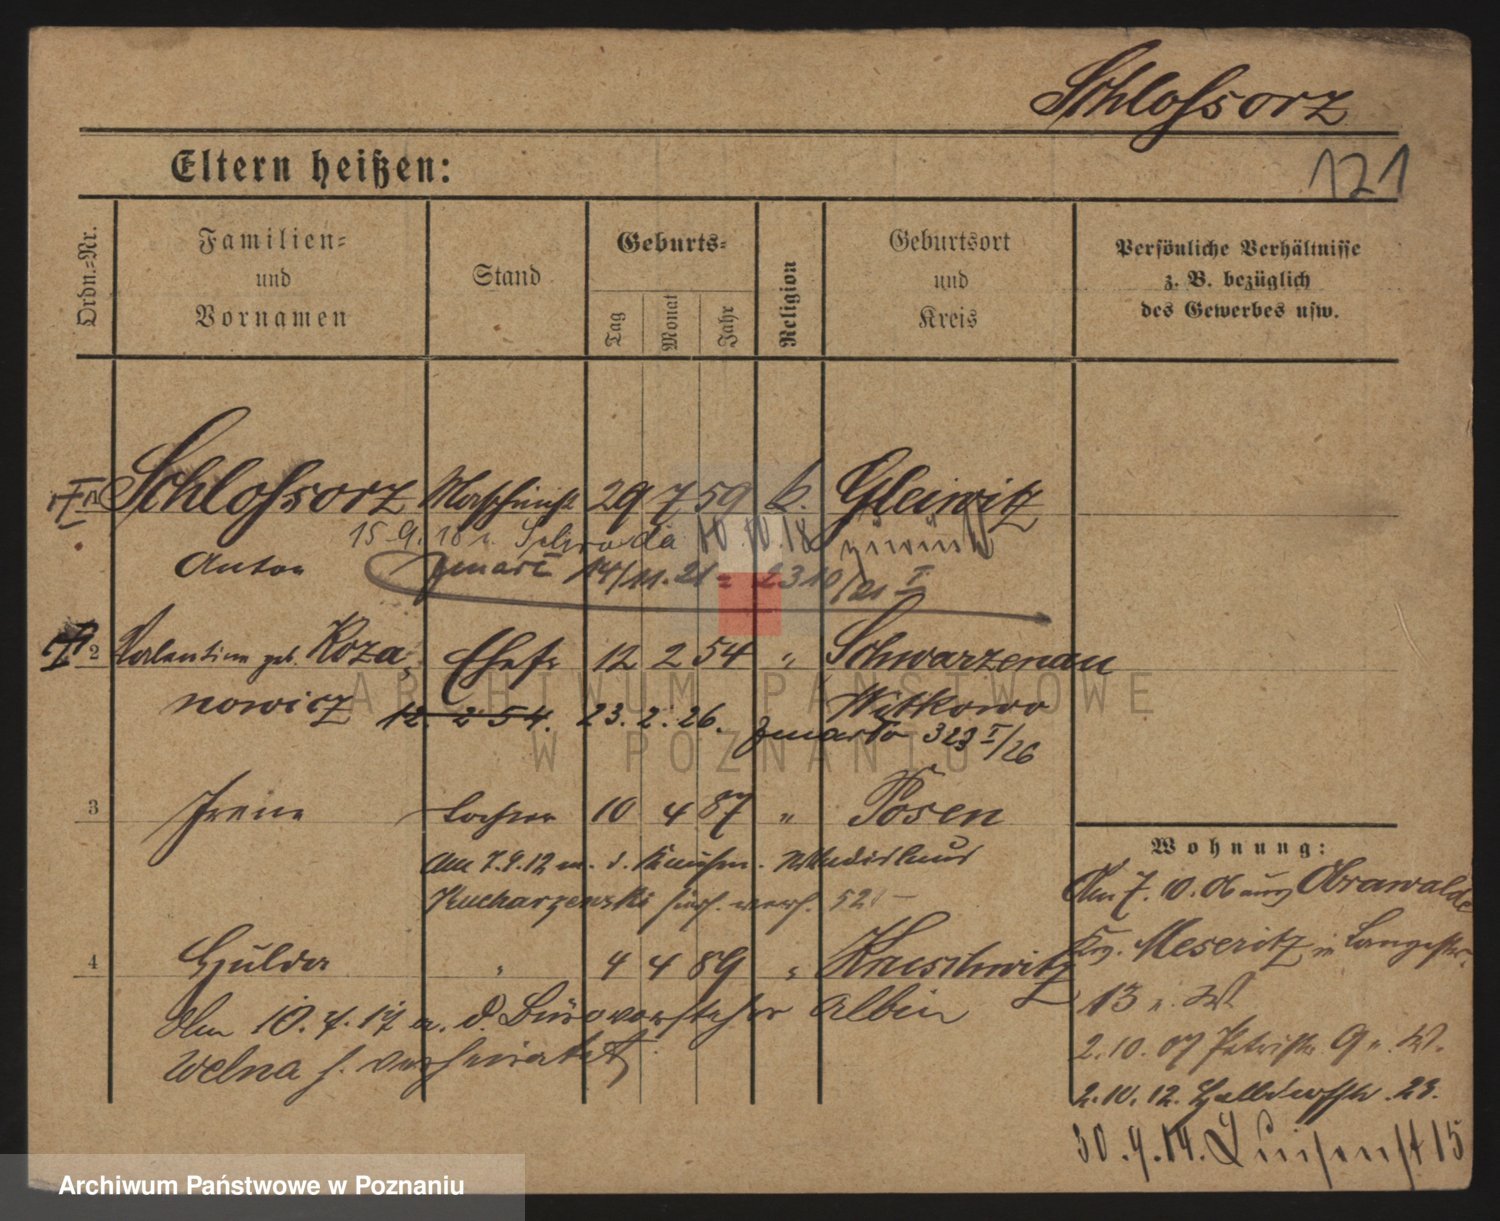 Schlossorz
121
Eltern heißen:
Ordn.-Nr.
Familien-
und
Vornamen
Stand
Geburts-
Tag
Monat
Jahr
Religion
Geburtsort
und
Kreis
Persönliche Verhältnisse
z. B. bezüglich
des Gewerbes usw.
Schlossorz Maschinist 29 7 59 k. Gleiwitz
15.9.18 n. Schroda 10.10.18 zurück
Anton zmarł 14/11.21 = 2310/21 I
2 Valentine geb. Koza- Ehefr. 12 2 54 " Schwarzenau
nowicz 12. 2 54. 23. 2. 26. Witkowo
zmarła 323 I/26
3 Irene Tochter 10 4 87 " Posen
Am 7.9.12 m. d. Kaufm.
Kucharzewski
4 Hulda " 4 4 89 " Kruschwitz
Am 10.4.17 m. d. Bürovorsteher Albin
Welna h. verheiratet.
Wohnung:
Am 7. 10. 06 aus Obrawalde
Krs. Meseritz n Langestr.
13 b. W
2.10.07 Petristr. 9 b. W.
2.10.12. Halbdorfstr. 23.
30.9.14. Luisenst 15
ARCHIWUM PAŃSTWOWE
W POZNANIU
Archiwum Państwowe w Poznaniu